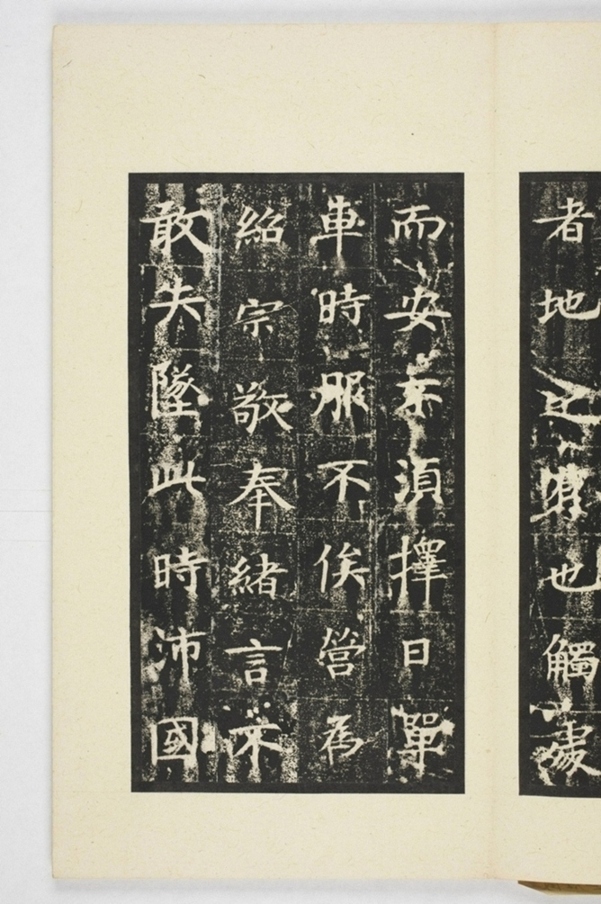 者地之將也觸處
而安未須擇日單
車時服不俟營為
紹宗敬奉緒言不
敢失墜此時沛國